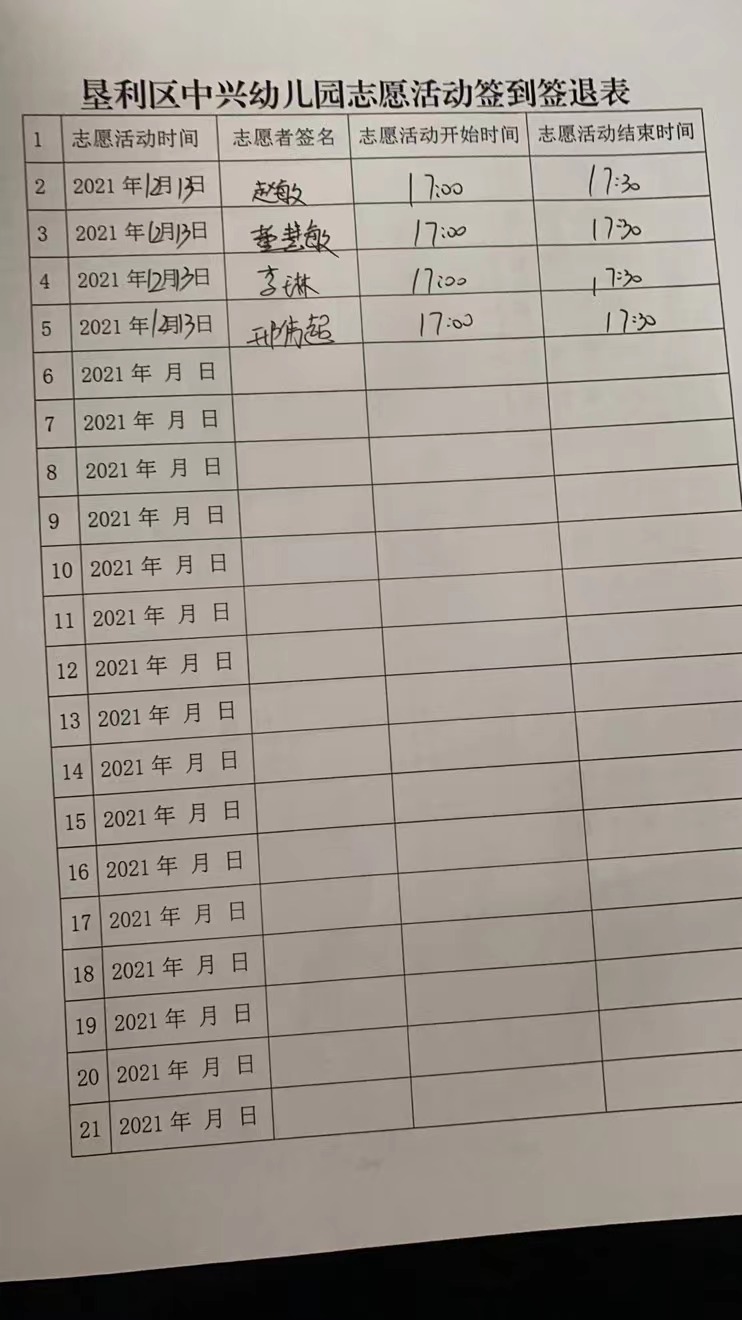 垦利区中兴幼儿园志愿活动签到签退表
1 志愿活动时间 志愿者签名 志愿活动开始时间 志愿活动结束时间
2 2021年12月13日 赵敏 17:00 17:30
3 2021年12月13日 董慧敏 17:00 17:30
4 2021年12月13日 李琳 17:00 17:30
5 2021年12月13日 邢伟超 17:00 17:30
6 2021年 月 日
7 2021年 月 日
8 2021年 月 日
9 2021年 月 日
10 2021年 月 日
11 2021年 月 日
12 2021年 月 日
13 2021年 月 日
14 2021年 月 日
15 2021年 月 日
16 2021年 月 日
17 2021年 月 日
18 2021年 月 日
19 2021年 月 日
20 2021年 月 日
21 2021年 月 日